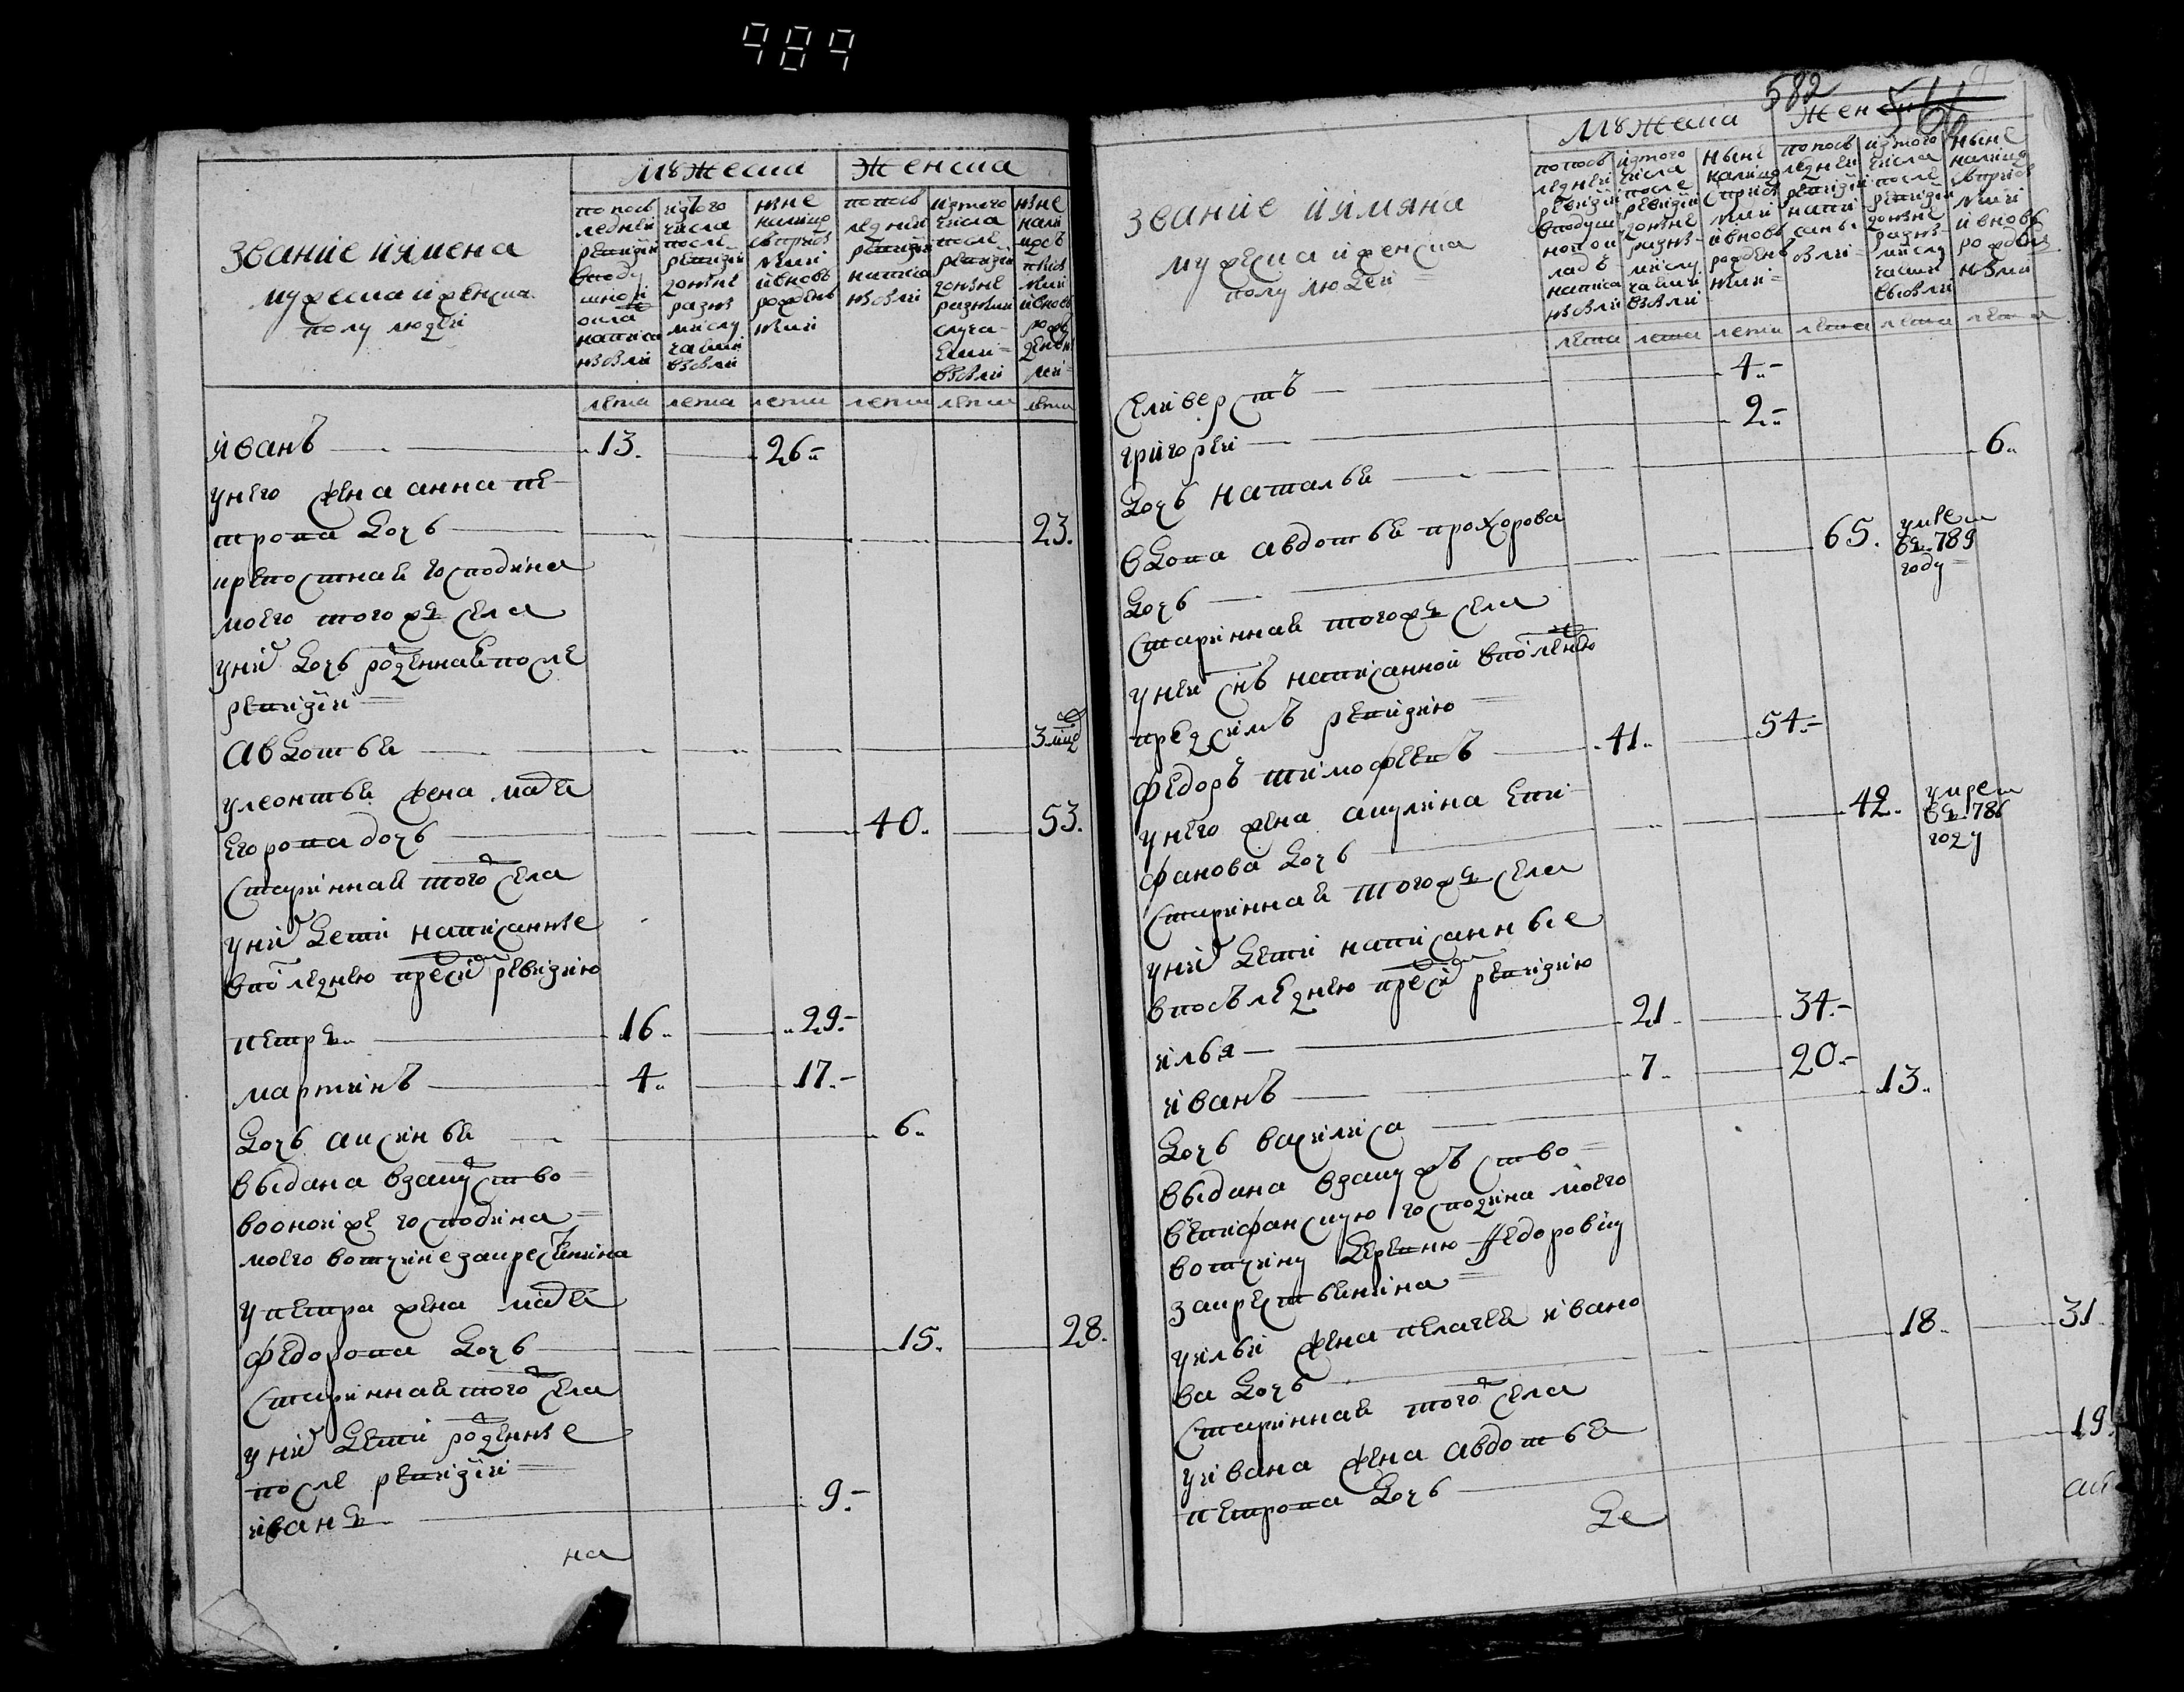 484
мужеска
женска
звание и имена
мужеска и женска
полу людей
по пось
ледней
ревизии
в поду
шной
окла
написа
ны были
из того
числа
после
ревизии
до ныне
разны
ми слу
чаями
выбыли
ныне
налицо
с прибы
лыми
и вновь
рожден
ными
по пось
ледней
ревизии
написа
ны были
из того
числа
после
ревизии
до ныне
разными
случа
еми
выбыли
ныне
нали
цо съ
прибы
лыми
и вновь
рож
денны
ми
лета лета лета лета лета лета
иванъ 13. 26.
у него жена анна пе
трова дочь 23.
крепостная господина
моего того ж села
у них дочь рожденная после
ревизии
авдотья 3 мид
у леонтья жена мавра
егорова дочь 40. 53.
старинная того ж села
у них дети написанные
в последнею пред сим ревизию
петръ 16. 29.
мартинъ 4. 17.
дочь аксинья 6.
выдана в замужство
во оной же господина
моего вотчине за крестьянина
у петра жена мавра
федорова дочь 15. 28.
старинная того ж села
у них дети рожденные
после ревизии
иванъ 9.
на
582
мужеска
жен
звание и имяна
мужеска и женска
полу людей
по пось
ледней
ревизии
в подуш
ной ок
ладъ
написа
ны были
из того
числа
после
ревизии
до ныне
разны
ми слу
чаями
выбыли
ныне
налицо
с прибы
лыми
и вновь
рожден
ными
по пось
ледней
ревизии
напи
саны
были
из того
числа
после
ревизии
до ныне
разны
ми слу
чаями
выбыли
ныне
налицо
с прибы
лыми
и вновь
рожден
ными
лета лета лета лета лета лета
селиверстъ 4.
григорей 2.
дочь наталья 6.
вдова авдотья прохорова
дочь 65. умре
в 789
году
старинная того ж села
у ней сын написанной в последнею
пред симъ ревизию
федоръ тимофеевъ 41. 54.
у него жена акулина епи
фанова дочь 42. умре
в 786
году
старинная того ж села
у них дети написанные
в посъледнею пред сим ревизию
илья 21. 34.
иванъ 7. 20.
дочь василиса 13.
выдана в замужъство
в епифанскую господина моего
вотчину деревню федоровку
за крестьянина
у ильи жена пелагея ивано
ва дочь 18. 31
старинная того ж села
у ивана жена авдотья
петрова дочь 19.
де